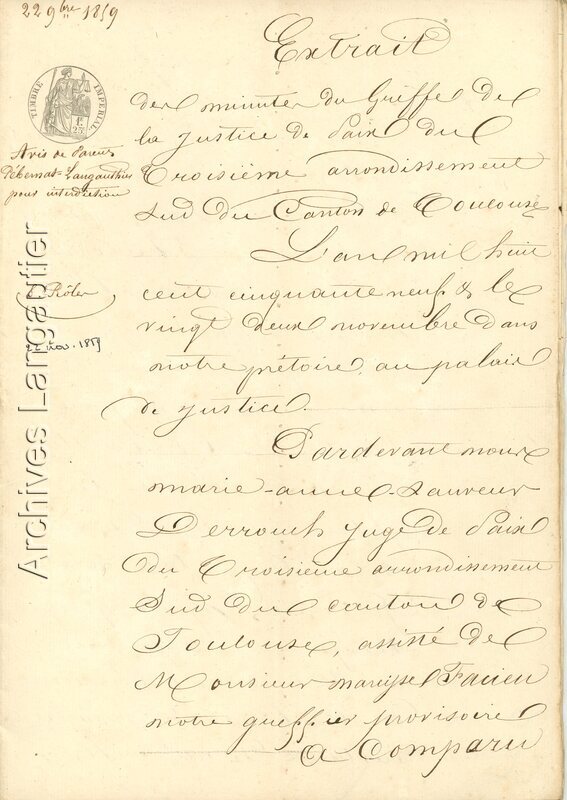 22 9bre 1859
Extrait
TIMBRE IMPERIAL
1F
25
Avis de Parens
pour interdiction
Rôles
22 nov. 1859
Archives Langautier
des minutes du Greffe de
la justice de Paix du
Troisième arrondissement
Sud du Canton de Toulouse
L'an mil huit
cent cinquante neuf & le
vingt deux novembre dans
notre prétoire au palais
de justice.
Pardevant nous
marie-anne-Sauveur
juge de Paix
du Troisieme arrondissement
Sud du canton de
Toulouse, assisté de
Monsieur
notre greffier provisoire
A Comparu